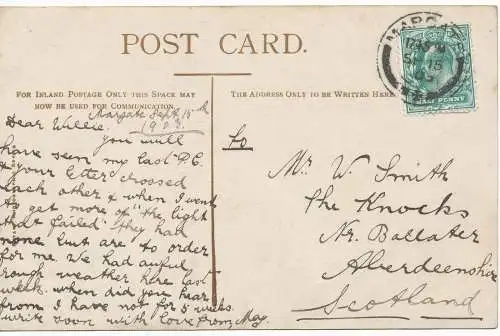 POST CARD.
FOR INLAND POSTAGE ONLY THIS SPACE MAY
NOW BE USED FOR COMMUNICATION.
THE ADDRESS ONLY TO BE WRITTEN HERE.
MARGATE
SP 15
HALF PENNY
Margate Sept 15th
1903
Dear Willie.
you will
have seen my last P.C.
& your letter crossed
each other & when I went
to get more of "the light
that failed" they had
none but are to order
for me. We had awful
rough weather here last
week. when did you hear
from I have not for 5 weeks.
write soon with love from May.
to
Mr. W. Smith
The Knocks
Nr. Ballater
Aberdeenshire
Scotland